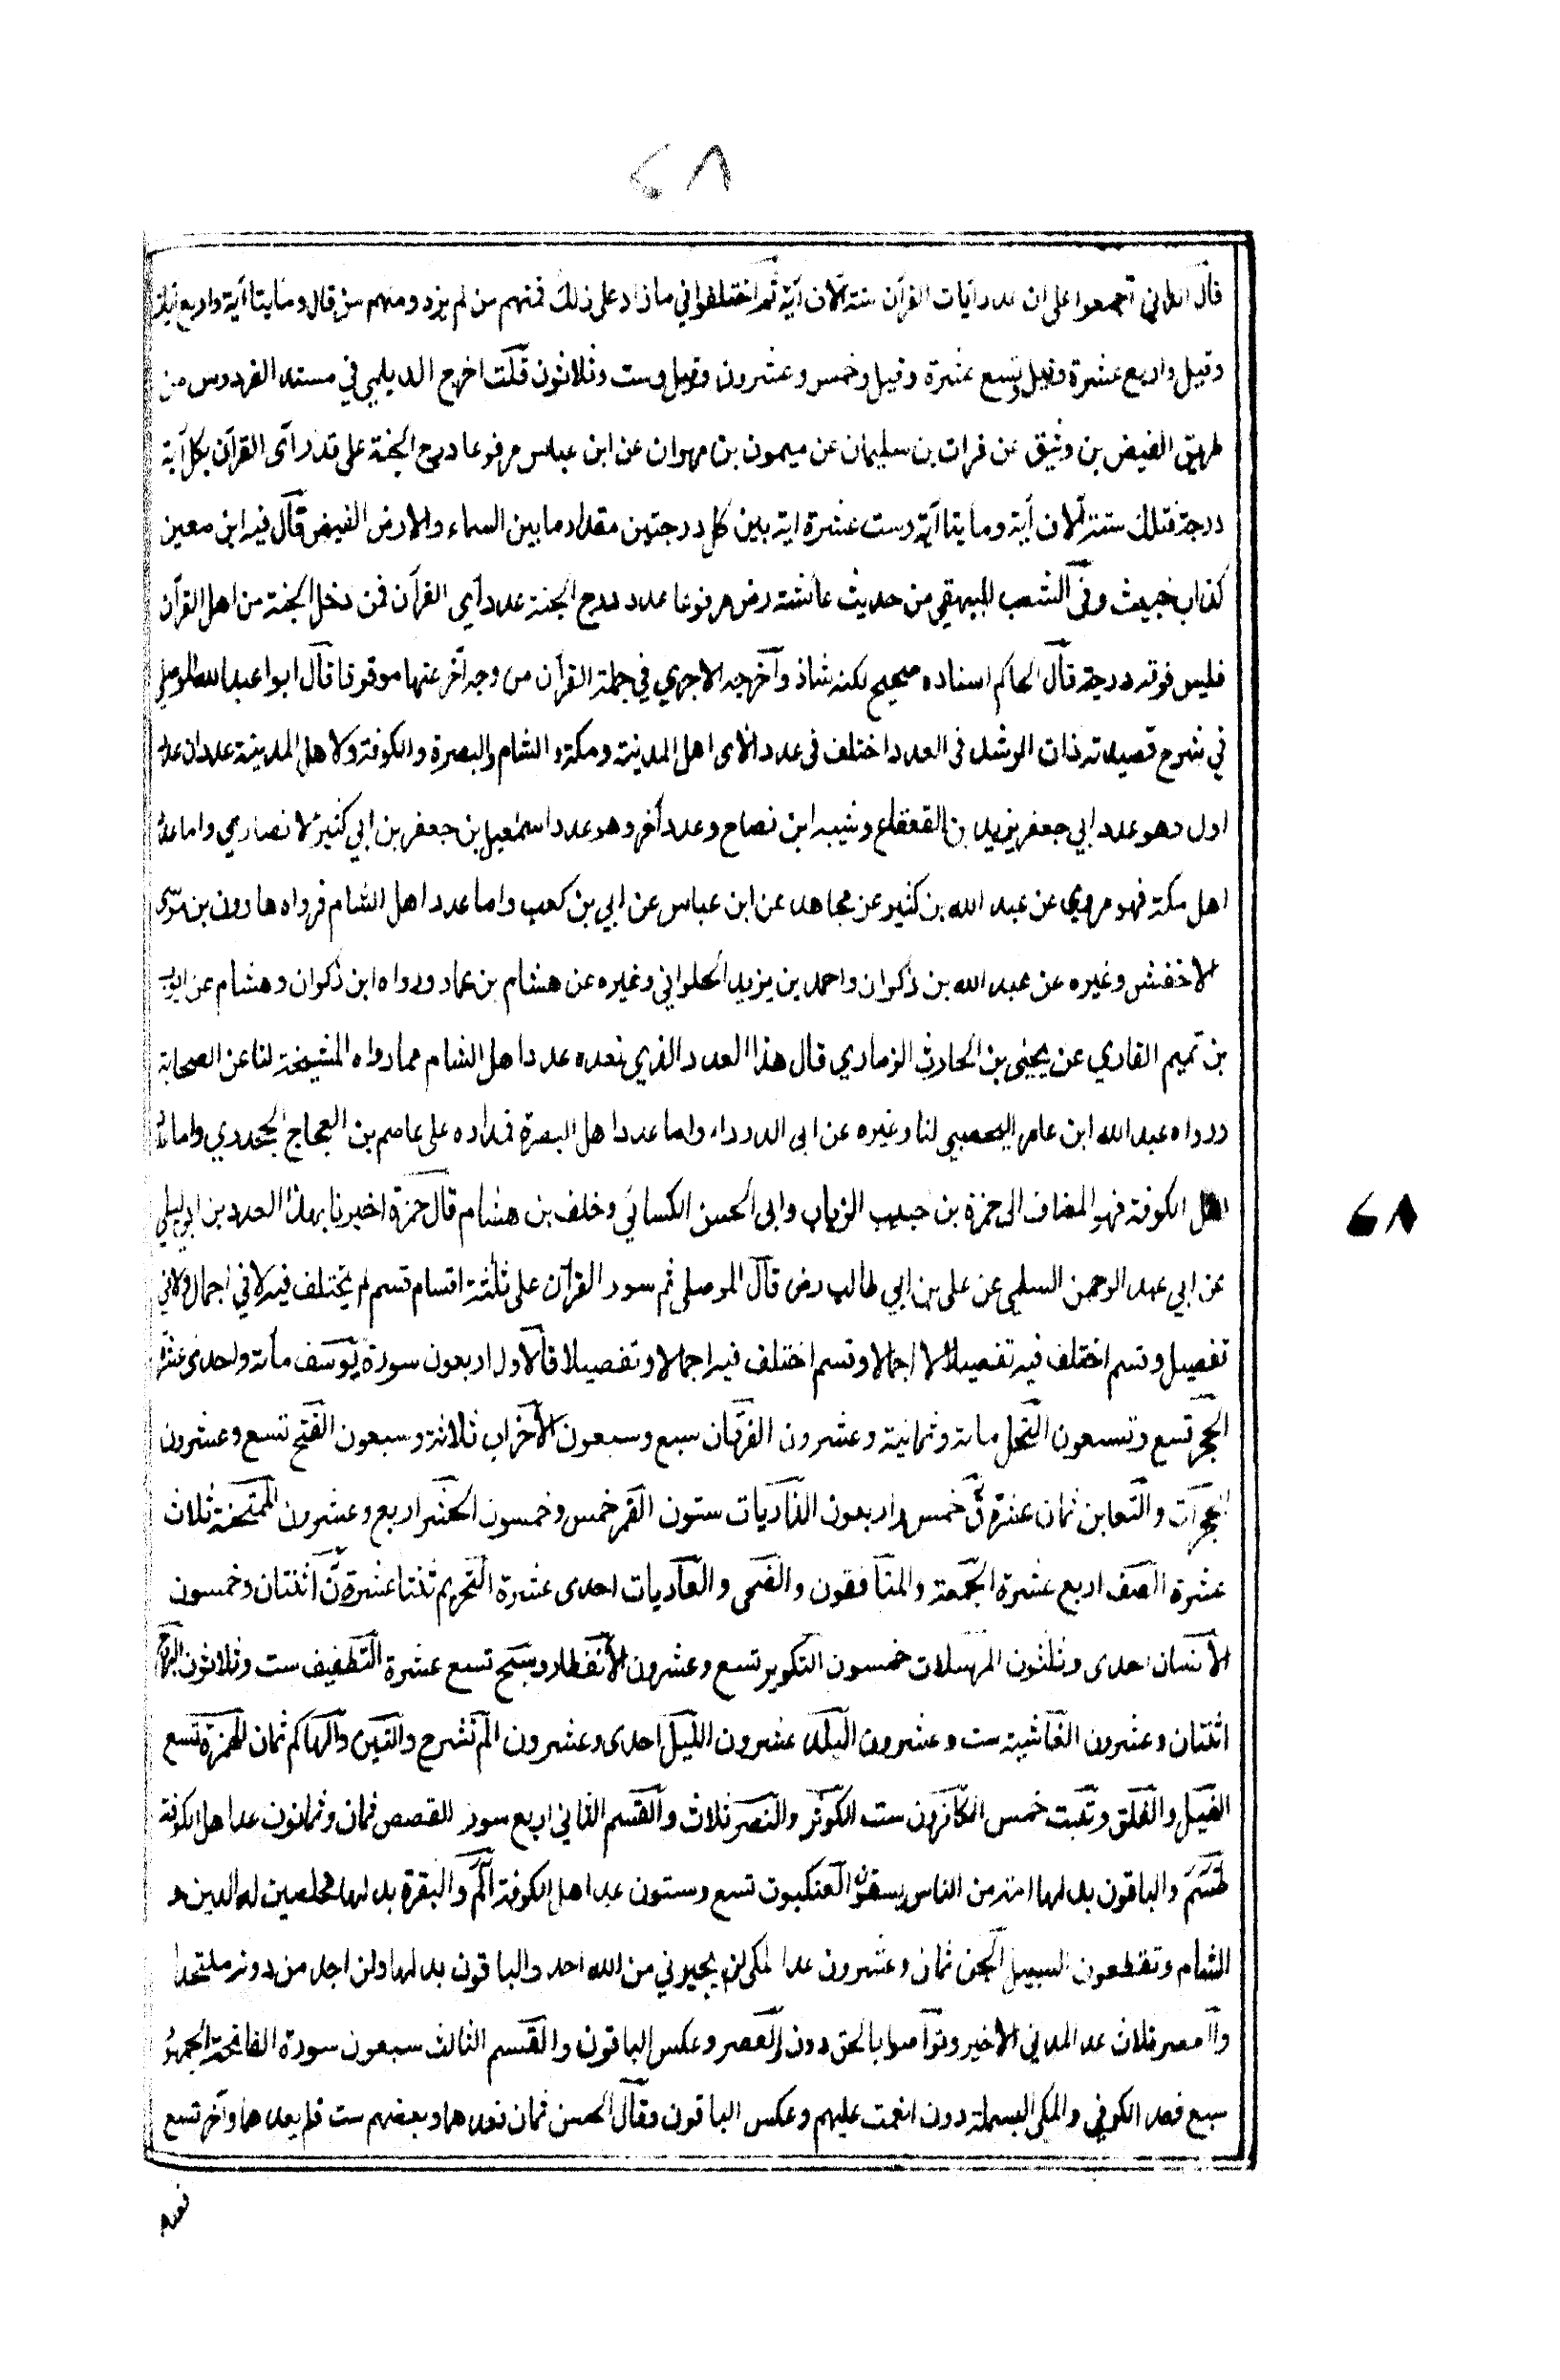 ٤٨
قال الداني أجمعوا على ان عدد آيات القرآن ستة آلاف آية ثم اختلفوا في ما زاد على ذلك فمنهم من لم يزد ومنهم من قال ومايتا آية واربع آيات
وقيل واربع عشرة وقيل وتسع عشرة وقيل وخمس وعشرون وقيل وست وثلاثون قلت اخرج الديلمي في مسند الفردوس من
طريق الفيض بن وثيق عن فرات بن سليمان عن ميمون بن مهران عن ابن عباس مرفوعا درج الجنة على قدر آى القرآن بكل آية
درجة فتلك ستة آلاف آية ومايتا آية وست عشرة اية بين كل درجتين مقدار ما بين السماء والارض الفيض قال فيه ابن معين
كذاب خبيث وفي الشعب للبيهقي من حديث عائشة رض مرفوعا عدد درج الجنة عدد آي القرآن فمن دخل الجنة من اهل القرآن
فليس فوقه درجة قال الحاكم اسناده صحيح لكنه شاذ وآخرجه الاجري في حملة القرآن من وجه آخر عنها موقوفا قال ابوا عبد الله الموصلي
في شرح قصيدته ذات الرشد في العدد اختلف فى عدد الآى اهل المدينة ومكة والشام والبصرة والكوفة ولاهل المدينة عددان عدد
اول وهو عدد ابي جعفر يزيد بن القعقاع وشيبه ابن نصاح وعدد آخر وهو عدد اسمعيل بن جعفر بن ابي كثير الانصاري واما عدد
اهل مكة فهو مروي عن عبد الله بن كثير عن مجاهد عن ابن عباس عن ابي بن كعب واما عدد اهل الشام فرواه هارون بن موسى
الاخفش وغيره عن عبد الله بن ذكوان واحمد بن يزيد الحلواني وغيره عن هشام بن عمار ورواه ابن ذكوان وهشام عن ايوب
بن تميم القاري عن يحيى بن الحارث الزماري قال هذا العدد الذي نعده عدد اهل الشام مما رواه المشيخة لنا عن الصحابة
ورواه عبد الله ابن عامر اليحصبي لنا وغيره عن ابى الدرداء واما عدد اهل البصرة فمداره على عاصم بن العجاج الجحدري واما عدد
اهل الكوفة فهو المضاف الى حمزة بن حبيب الزيات وابى الحسن الكسائي وخلف بن هشام قال حمزة اخبرنا بهذا العدد بن ابي ليلى
عن ابي عبد الرحمن السلمي عن على بن ابي طالب رض قال الموصلى ثم سور القرآن على ثلثة اقسام قسم لم يختلف فيه لا في اجمال ولا في
تفصيل وقسم اختلف فيه تفصيلا لا اجمالا وقسم اختلف فيه اجمالا وتفصيلا فالاول اربعون سورة يوسف مأئة واحدى عشرة
الحجر تسع وتسعون النحل مائة وثمانية وعشرون الفرقان سبع وسبعون الأحزاب ثلاثة وسبعون الفتح تسع وعشرون
الحجرات والتغابن ثمان عشرة ق خمس واربعون الذاريات ستون القمر خمس وخمسون الحشر اربع وعشرون الممتحنة ثلاث
عشرة الصف اربع عشرة الجمعة والمنافقون والضحى والعاديات احدى عشرة التحريم ثنتا عشرة ن اثنتان وخمسون
الانسان احدى وثلثون المرسلات خمسون التكوير تسع وعشرون الأنفطار وسبح تسع عشرة التطفيف ست وثلاثون البروج
اثنتان وعشرون الغاشية ست وعشرون البلد عشرون الليل احدى وعشرون الم نشرح والتين والهاكم ثمان الهمزة تسع
الفيل والفلق وتبت خمس الكافرون ست الكوثر والنصر ثلاث والقسم الثاني اربع سور القصص ثمان وثمانون عدا اهل الكوفة
طسم والباقون بدلها امة من الناس يسقون العنكبوت تسع وستون عدا اهل الكوفة الم والبقرة بدلها مخلصين له الدين و
الشام وتقطعون السبيل الجن ثمان وعشرون عدا المكى لن يجيرني من الله احد والباقون بدلها ولن اجد من دونه ملتحدا
والعصر ثلاث عد المدني الاخير وتواصوا بالحق دون والعصر وعكس الباقون والقسم الثالث سبعون سورة الفاتحة الجمهور
سبع فعد الكوفي والمكى البسملة دون انعمت عليهم وعكس الباقون وقال الحسن ثمان فعدهما وبعضهم ست فلم يعدهما وآخر تسع
٤٨